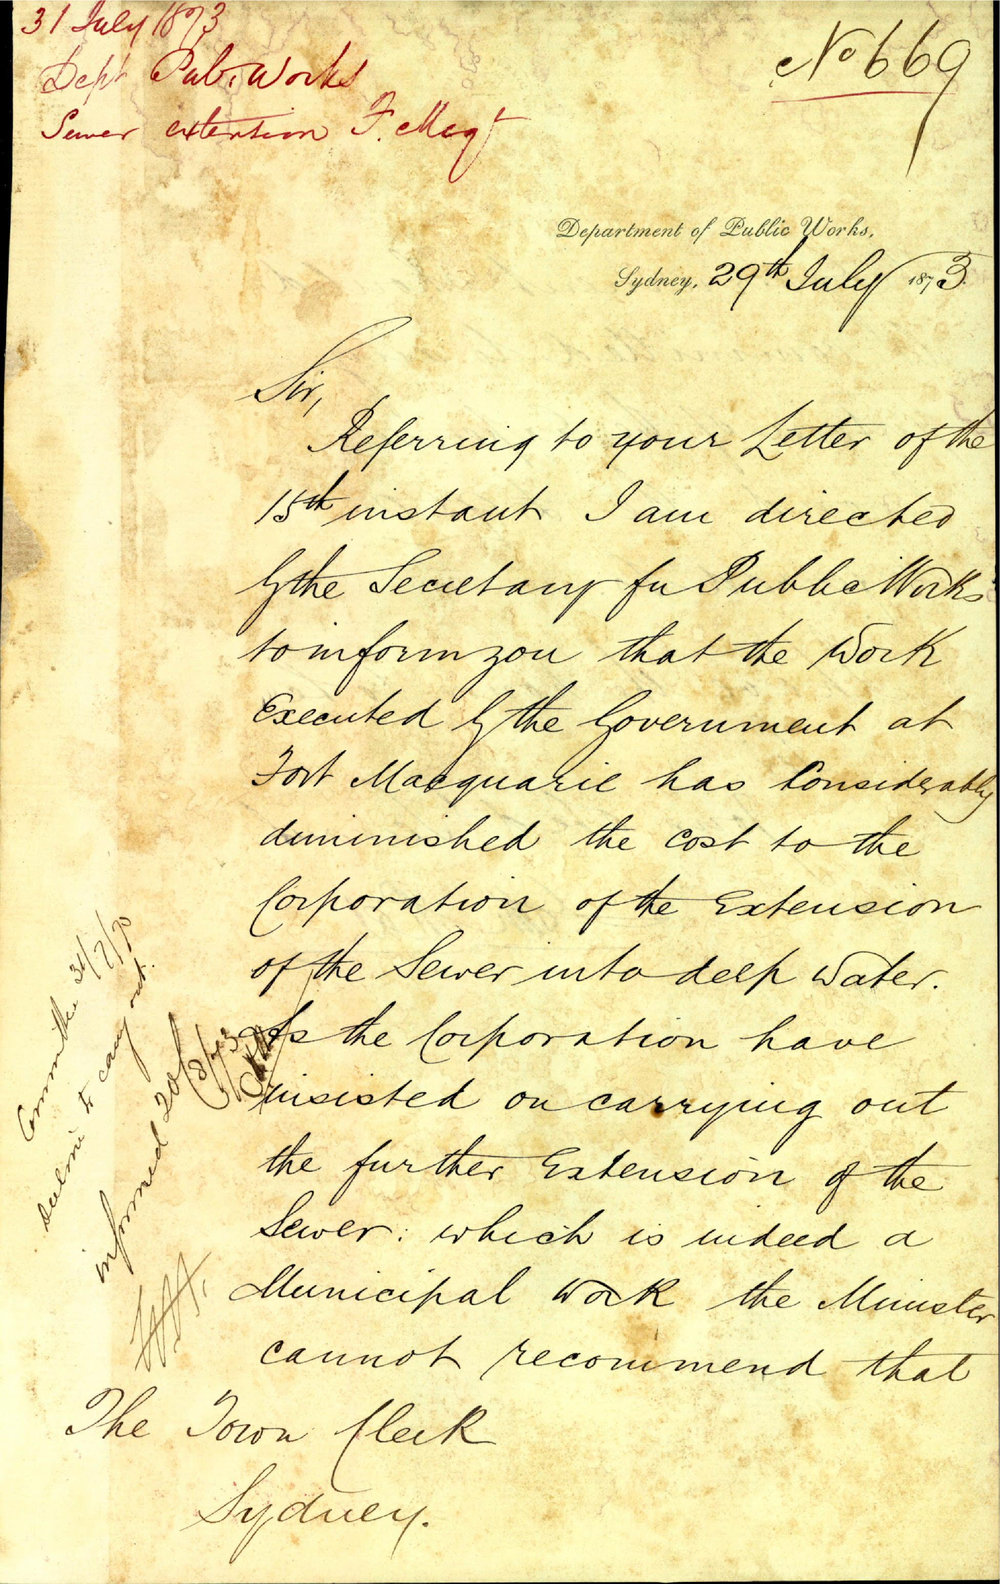 31 July 1873
Dept Pub. Works
Sewer extension F. Macqe
No 669
Department of Public Works,
Sydney, 29th July 1873.
Sir,
Referring to your Letter of the
15th instant I am directed
by the Secretary for Public Works
to inform you that the Work
Executed by the Government at
Fort Macquarie has Considerably
diminished the cost to the
Corporation of the Extension
of the Sewer into deep Water.
As the Corporation have
insisted on carrying out
the further Extension of the
Sewer: which is indeed a
Municipal Work the Minister
cannot recommend that
The Town Clerk
Sydney.
Committee 31/7/73
decline to carry out.
informed 20/8/73